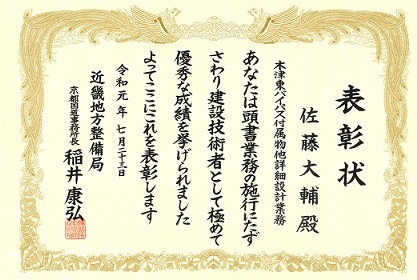 表彰状
佐藤大輔 殿
木津東バイパス付属物他詳細設計業務
あなたは頭書業務の施行にたず
さわり建設技術者として極めて
優秀な成績を挙げられました
よってここにこれを表彰します
令和元年 七月二十三日
近畿地方整備局
京都国道事務所長 稲井康弘